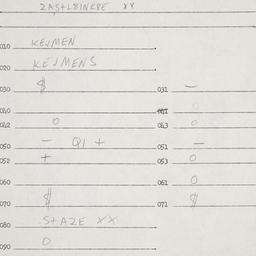 ZASTLBINKPE XX
010 KEJMEN
020 KEJMENS
030 $ 031 –
040 041 O
042 O 043 O
050 – QI + 051 –
052 + 053 O
060 061 O
070 $ 071 $
080 STAZE XX
090 O